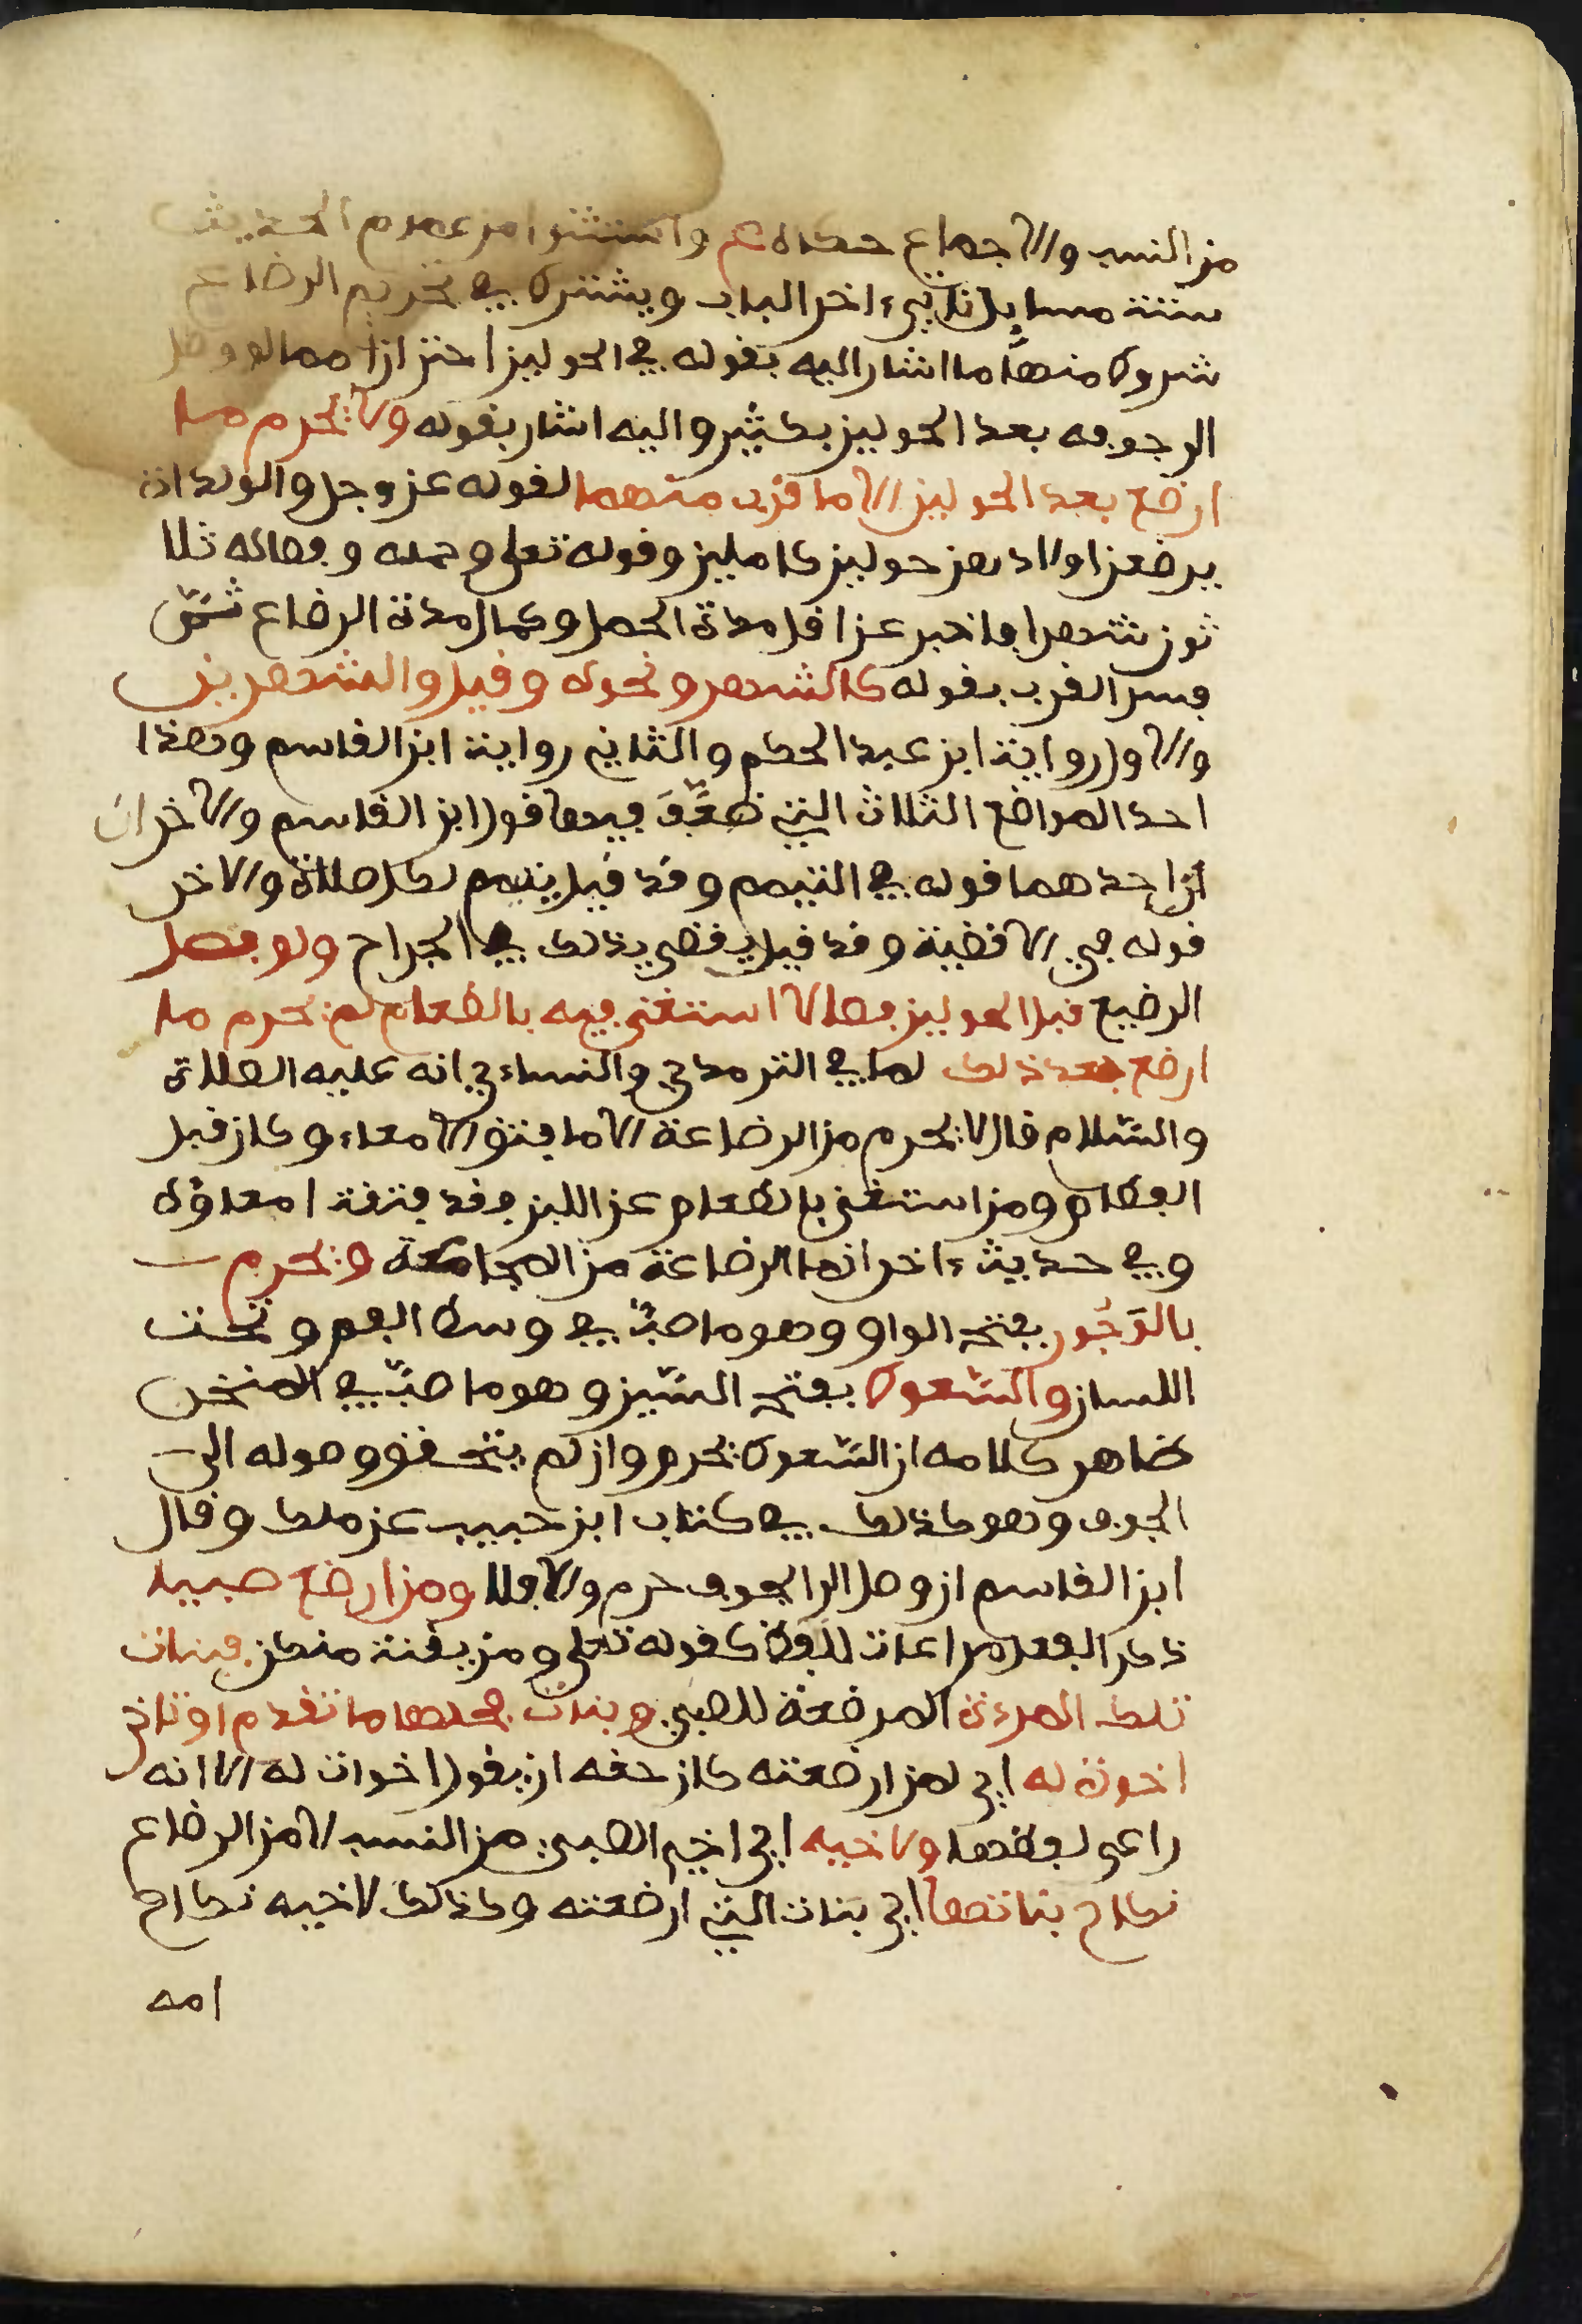 من النسب والاجماع حكاه ع واستثنوا من عموم الحديث
ستة مسايل تاتي ءاخر الباب ويشترط في تحريم الرضاع
شروط منها ما اشار اليه بقوله في الحولين احترازا مما لو وصل
الى جوفه بعد الحولين بكثير واليه اشار بقوله ولا يحرم ما
ارضع بعد الحولين الا ما قرب منهما لقوله عز وجل والولدات
يرضعن اولادهن حولين كاملين وقوله تعلى وحمله وفصاله ثلا
ثون شهرا فاخبر عن اقل مدة الحمل وكمال مدة الرضاع ثمّ
فسر القرب بقوله كالشهر ونحوه وقيل والشهرين
والاول رواية ابن عبد الحكم والثاني رواية ابن القاسم وهذا
احد المواضع الثلاث التي ضعّف فيها قول ابن القاسم والاخران
احدهما قوله في التيمم وقد قيل يتيمم لكل صلاة والاخر
قوله في الاقضية وقد قيل يقضي بذلك في الجراح ولو فصل
الرضيع قبل الحولين فصالا استغنى فيه بالطعام لم يحرم ما
ارضع بعد ذلك لما في الترمذي والنساءي انه عليه الصلاة
والسّلام قال لا يحرم من الرضاعة الا ما فتق الامعاء وكان قبل
الفطام ومن استغنى بالطعام عن اللبن فقد فتقت امعاؤه
وفي حديث ءاخر انما الرضاعة من المجاعة ويحرم
بالوَجُور بفتح الواو وهو ما صبّ في وسط الفم وتحت
اللسان والسّعوط بفتح السّين وهو ما صبّ في المنخر
ظاهر كلامه ان السّعوط يحرم وان لم يتحقق وصوله الى
الجوف وهو كذلك في كتاب ابن حبيب عن ملك وقال
ابن القاسم ان وصل الى الجوف حرم والا فلا ومن ارضع صبيا
ذكر الفعل مراعات للفظ كقوله تعلى ومن يقنت منكن فبنات
تلك المرءة المرضعة للصبي وبنات فحلها ما تقدم او تاخر
اخوة له اي لمن ارضعته كان حقه ان يقول اخوات له الا انه
راعى لفظها ولاخيه اي اخي الصبي من النسب لا من الرضاع
نكاح بناتها اي بنات التي ارضعته وكذلك لاخيه نكاح
امه